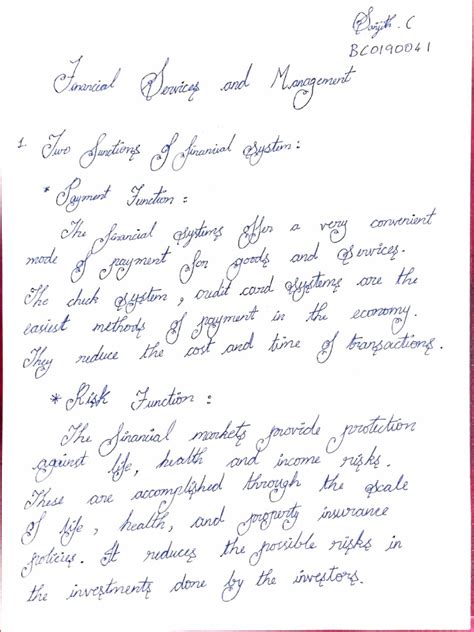 Sanjith. C
BC0190041
Financial Services and Management
1. Two functions of financial system :
* Payment Function :
The financial systems offer a very convenient
mode of payment for goods and services.
The check system, credit card systems are the
easiest methods of payment in the economy.
They reduce the cost and time of transactions.
* Risk Function :
The financial markets provide protection
against life, health and income risks.
These are accomplished through the scale
of life, health, and property insurance
policies. It reduces the possible risks in
the investments done by the investors.